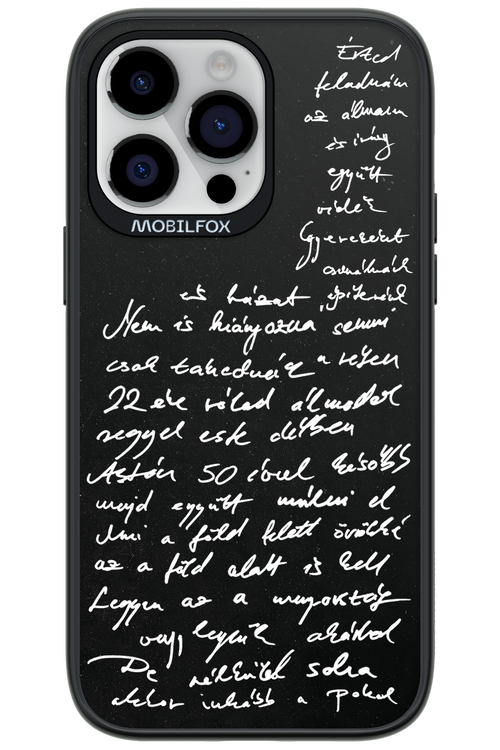 MOBILFOX
Érted
feladnám
az álmaim
és
együtt
Gyerekeket
csinálnánk
és házat építenénk
Nem is hiányozna semmi
csak takednánk a
22 éve rólad álmodok
reggel este délben
Aztán 50 évvel később
majd együtt múlni el
Ami a föld felett örökké
az a föld alatt is kell
Legyen az a mennyország
vagy legyünk akárhol
De nélküled soha
akkor inkább a Pokol